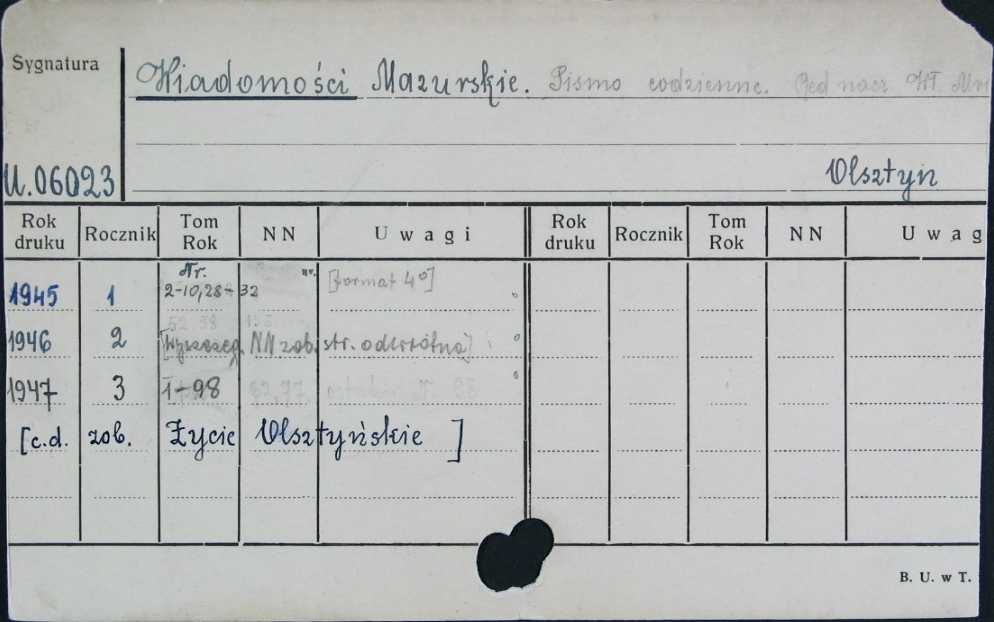 Sygnatura
Wiadomości Mazurskie. Pismo codzienne. Red nacz Wł.
U.06023
Olsztyn
Rok druku Rocznik Tom Rok NN Uwagi Rok druku Rocznik Tom Rok NN Uwag
Nr. nr.
1945 1 2-10,28-32 [format 4°]
1946 2 [Wyszczeg. NN zob. str. odwrotna]
1947 3 1-98
[c.d. zob. Życie Olsztyńskie ]
B. U. w T.